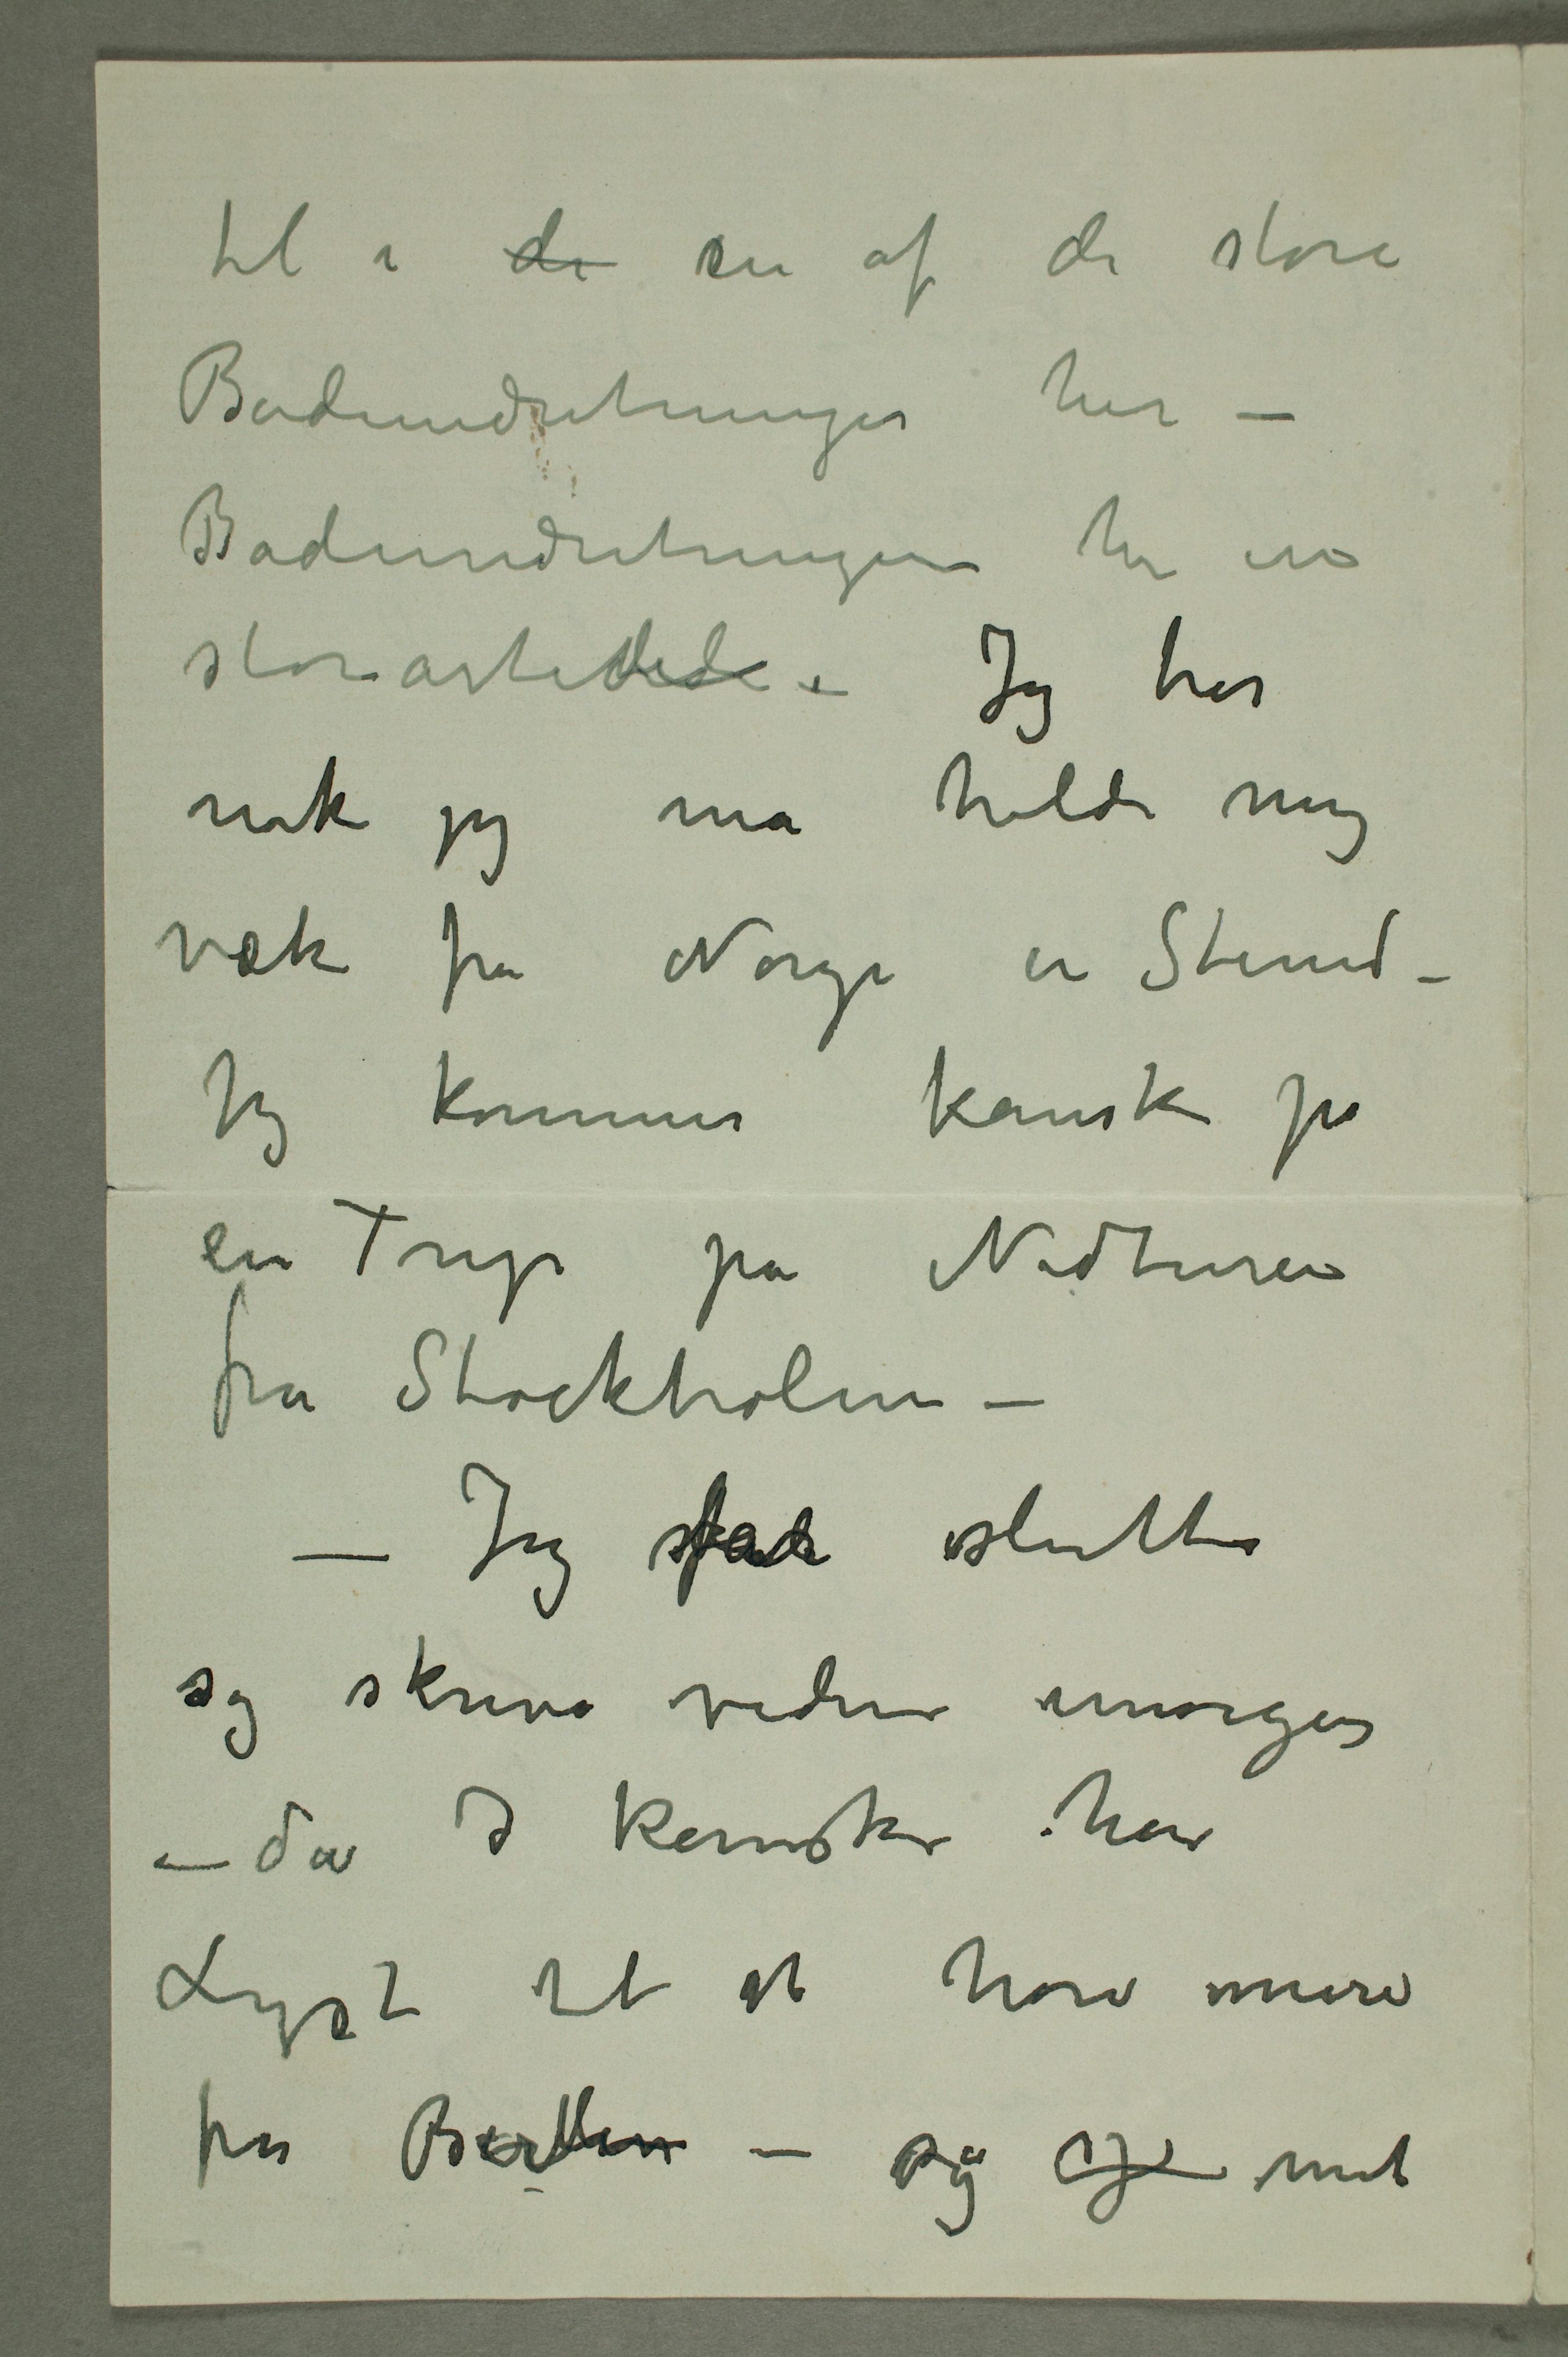 til i de en af de store
Badeindretninger her –
Badeindretningene her ere
storartede – Jeg tror
nok jeg må holde mig
væk fra Norge en Stund –
Jeg kommer kanske på
en Trip på Nedturen
fra Stockholm –
– Jeg skal slutte
og skrive videre imorgen
– da I kanske har
Lyst til at høre mere
fra Berlin – og mit